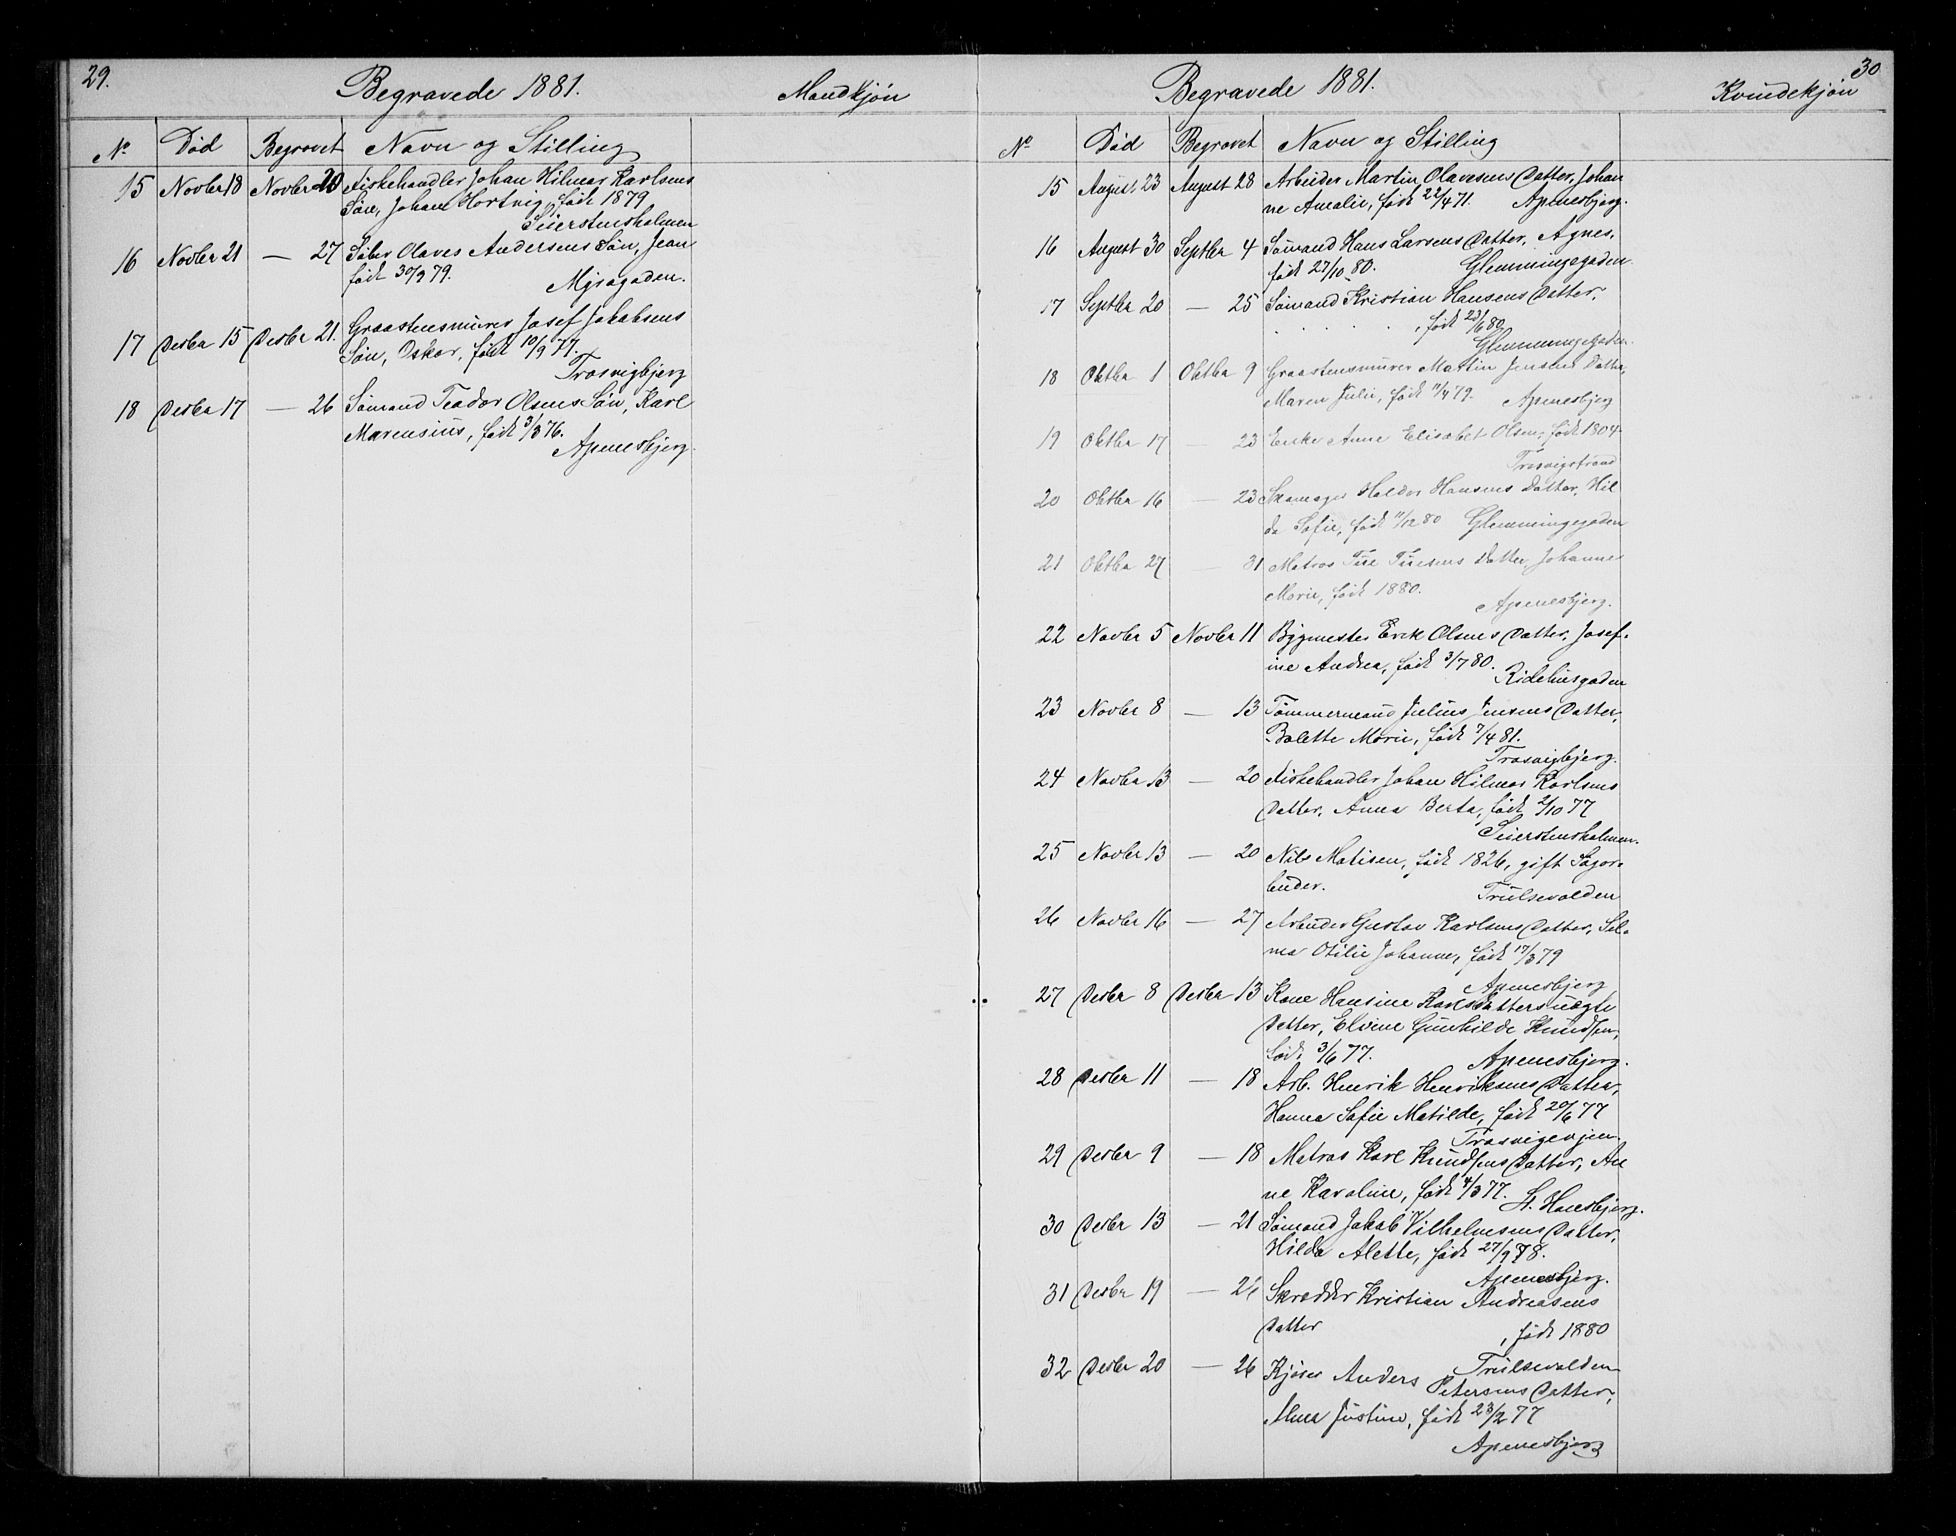 29.
Begravede 1881. Mandkjøn
No Død Begravet Navn og Stilling
15 Novbr 18 Novbr 20 Fiskehandler Johan Hilmar Karlsens
Søn, Johan Hartvig, født 1879
Seierstensholmen
16 Novbr 21 — 27 Olaves Andersens Søn, Jean
født 30/9 79. Myragaden.
17 Desbr 15 Desbr 21. Graastensmurer Josef Jakobsens
Søn, Oskar, født 10/9 77.
Trosvigbjerg
18 Desbr 17 — 26 Sømand Teodor Olsens Søn, Karl
Marensius, født 3/3 76.
Apenesbjerg
30
Begravede 1881. Kvindekjøn
No Død Begravet Navn og Stilling
15 August 23 August 28 Arbeider Martin Olavesens Datter, Johan
ne Amalie, født 22/4 71. Apenesbjerg.
16 August 30 Septbr 4 Sømand Hans Larsens Datter, Agnes,
født 27/10 80. Glemmingegaden.
17 Septbr 20 — 25 Sømand Kristian Hansens Datter,
. . . . . , født 23/6 80
Glemmingegaden.
18 Oktbr 1 Oktbr 9 Graastensmurer Martin Jensens Datter,
Maren Julie, født 11/4 79. Apenesbjerg
19 Oktbr 17 — 23 Enke Anne Elisabet Olsen, født 1804
Trosvigstrand
20 Oktbr 16 — 23 Skomager Haldor Hansens Datter, Hil
da Sofie, født 11/12 80 Glemmingegaden
21 Oktbr 27 — 31 Matros Ture Turesens Datter, Johanne
Marie, født 1880.
Apenesbjerg.
22 Novbr 5 Novbr 11 Bygmester Erik Olsens Datter, Josef-
ine Andrea, født 3/7 80.
Ridehusgaden
23 Novbr 8 — 13 Tømmermand Julius Jensens Datter,
Bolette Marie, født 7/4 81.
Trosvigbjerg.
24 Novbr 13 — 20 Fiskehandler Johan Hilmar Karlsens
Datter, Anna Berta, født 2/10 77
Seierstensholmen.
25 Novbr 13 — 20 Nils Matisen, født 1826, gift Sagar-
beider. Trulsevolden
26 Novbr 16 — 27 Arbeider Gustav Karlsens Datter, Sel-
ma Otilie Johanne, født 17/3 79
Apenesbjerg
27 Desbr 8 Desbr 13 Kone Hansine Karlsdatters uægte
Datter, Elvine Gunhilde Knudsen,
født 3/6 77. Apenesbjerg.
28 Desbr 11 — 18 Arb. Henrik Henriksens Datter,
Hanna Sofie Matilde, født 20/6 77
Trosvigevjen.
29 Desbr 9 — 18 Matros Karl Knudsens Datter, An
ne Karoline, født 4/3 77. St. Hansbjerg.
30 Desbr 13 — 21 Sømand Jakob Vilhelmsens Datter,
Hilda Alette, født 27/9 78.
Apenesbjerg.
31 Desbr 19 — 26 Skrædder Kristian Andreasens
Datter , født 1880
Trulsevolden
32 Desbr 20 — 26 Kjører Anders Petersens Datter,
Alma Justine, født 23/2 77
Apenesbjerg